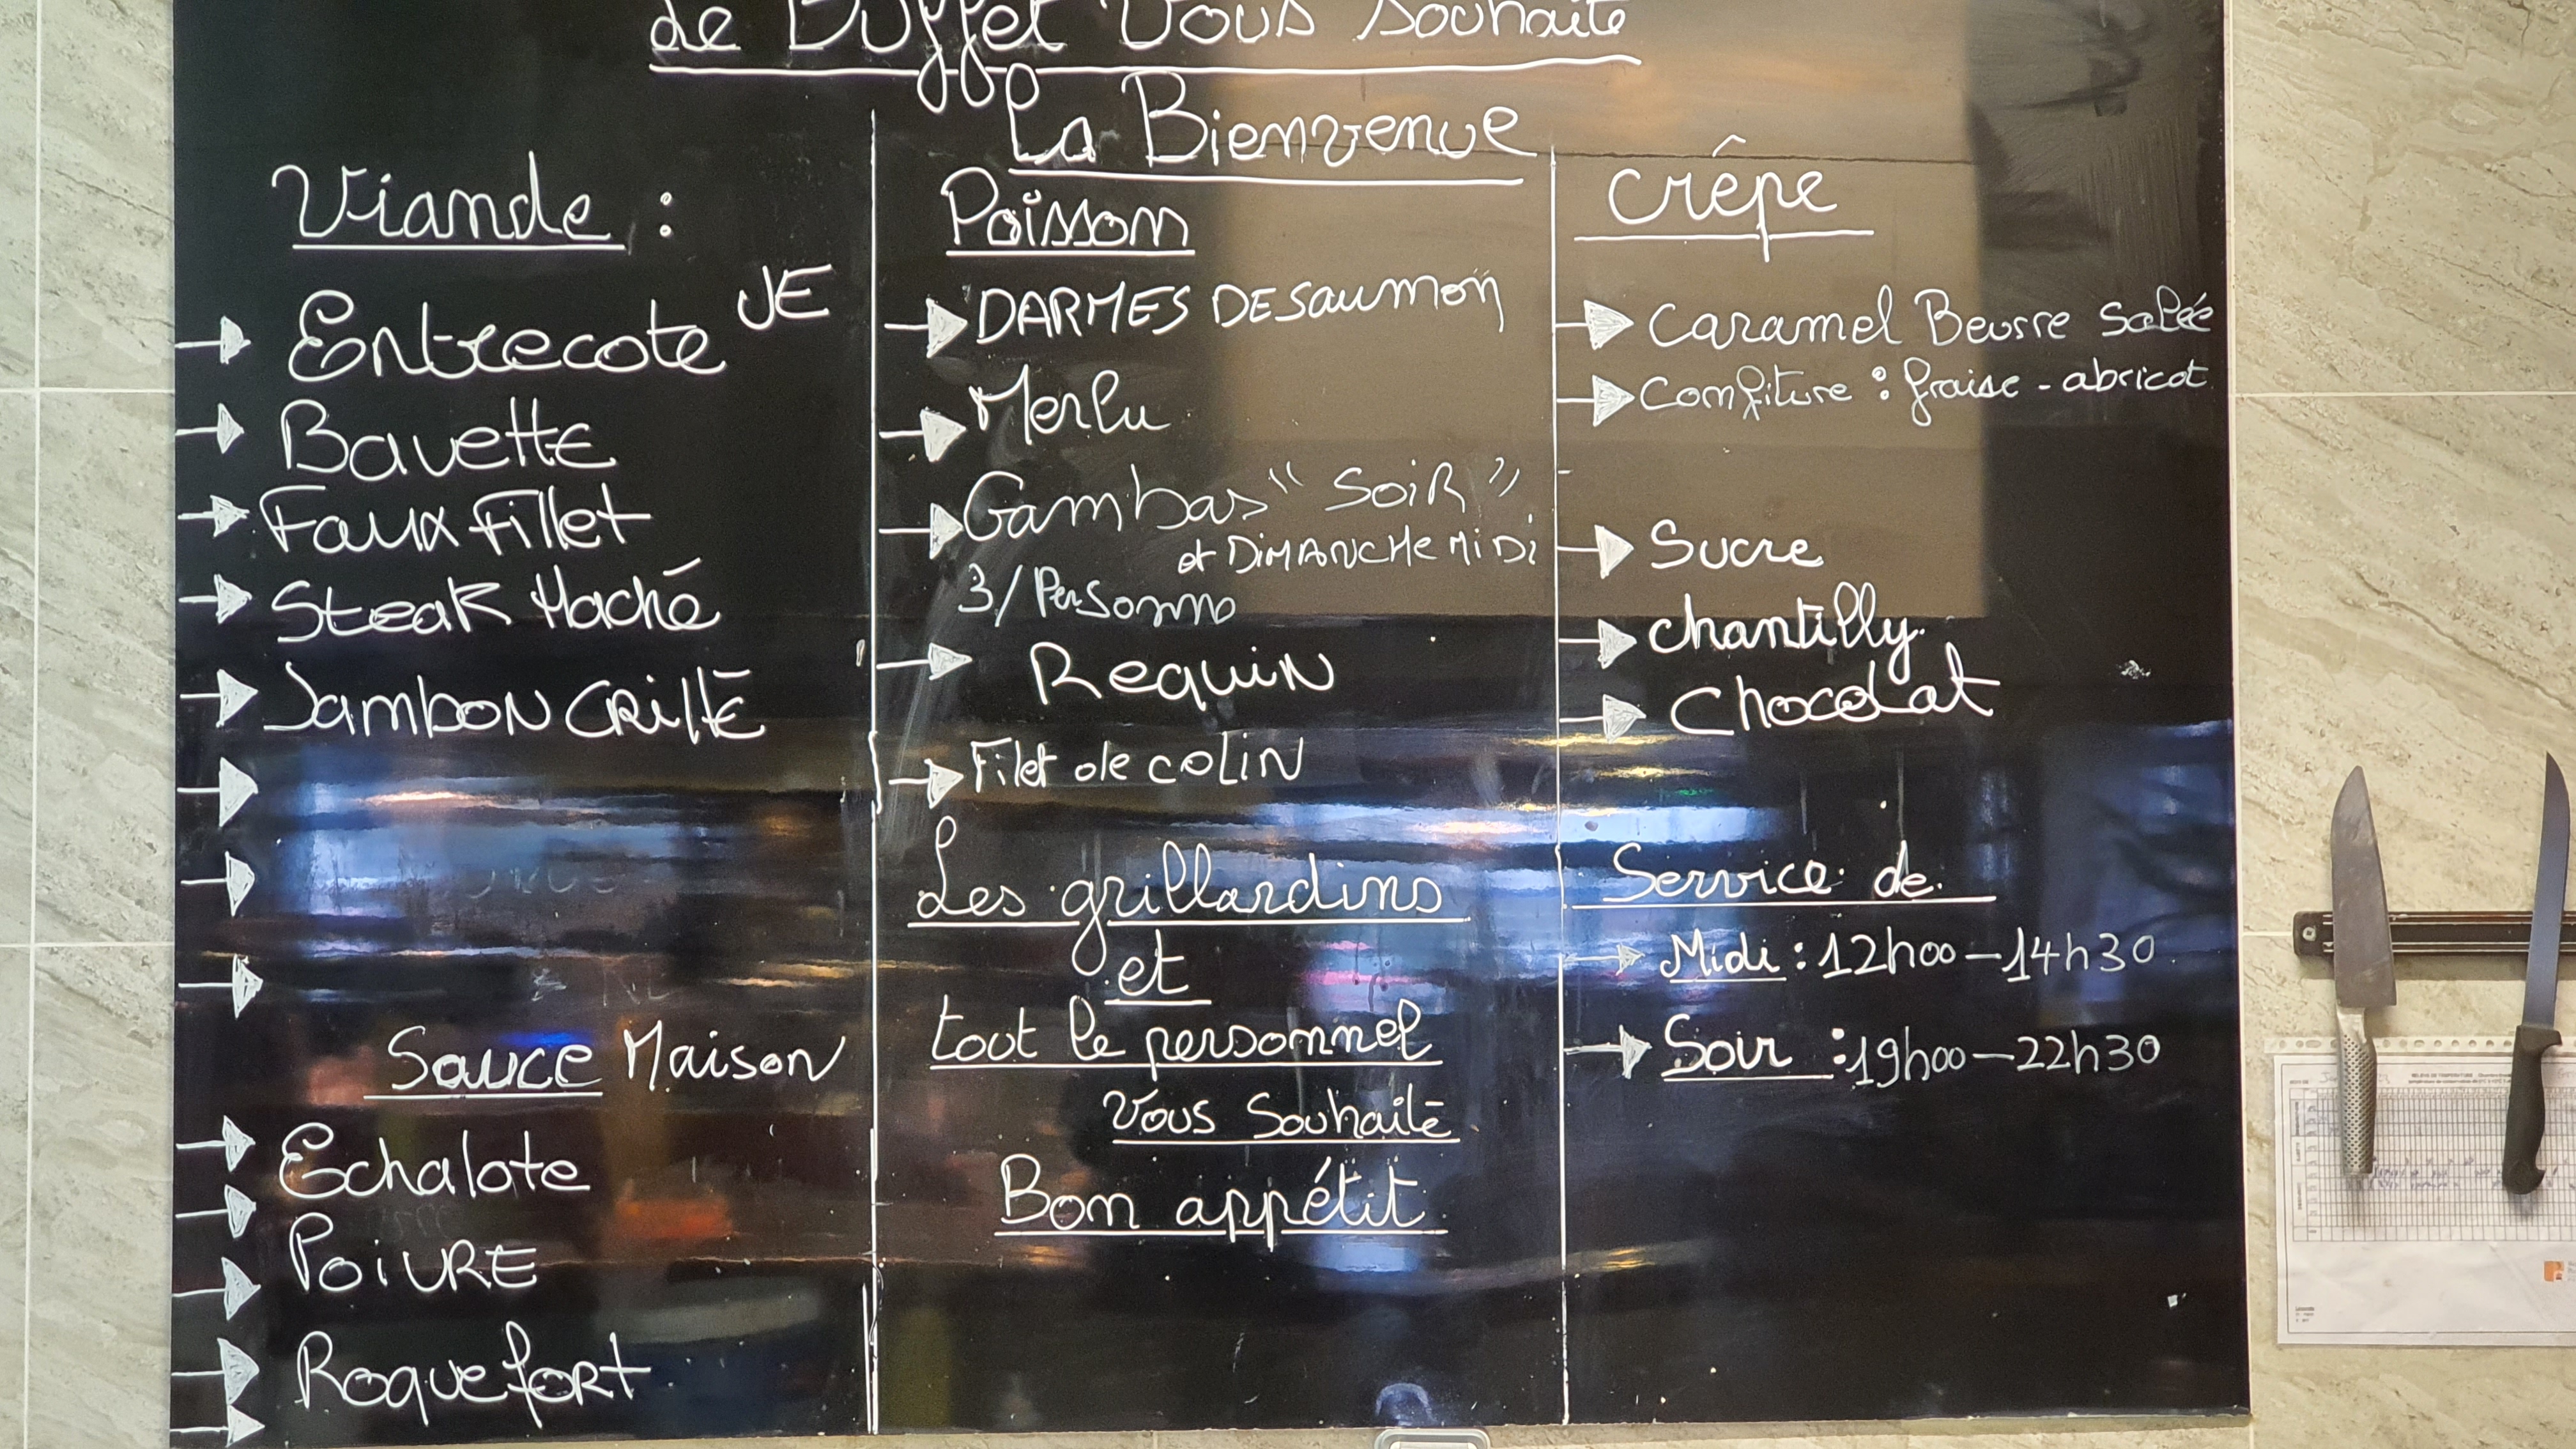 de Buffet Vous souhaite
La Bienvenue
Viande :
Entrecote JE
Bavette
Faux Fillet
Steak Haché
Jambon GRillÉ
Sauce Maison
Echalote
POIVRE
Roquefort
Poisson
DARMES DE Saumon
Merlu
Gambas "SOIR"
et DIMANCHE MIDI
3/Personne
Requin
Filet de colin
Les grillardins
et
tout le personnel
Vous Souhaite
Bon appétit
Crêpe
Caramel Beurre Salée
Confiture : fraise - abricot
Sucre
Chantilly
Chocolat
Service de
Midi : 12h00 - 14h30
Soir : 19h00 - 22h30